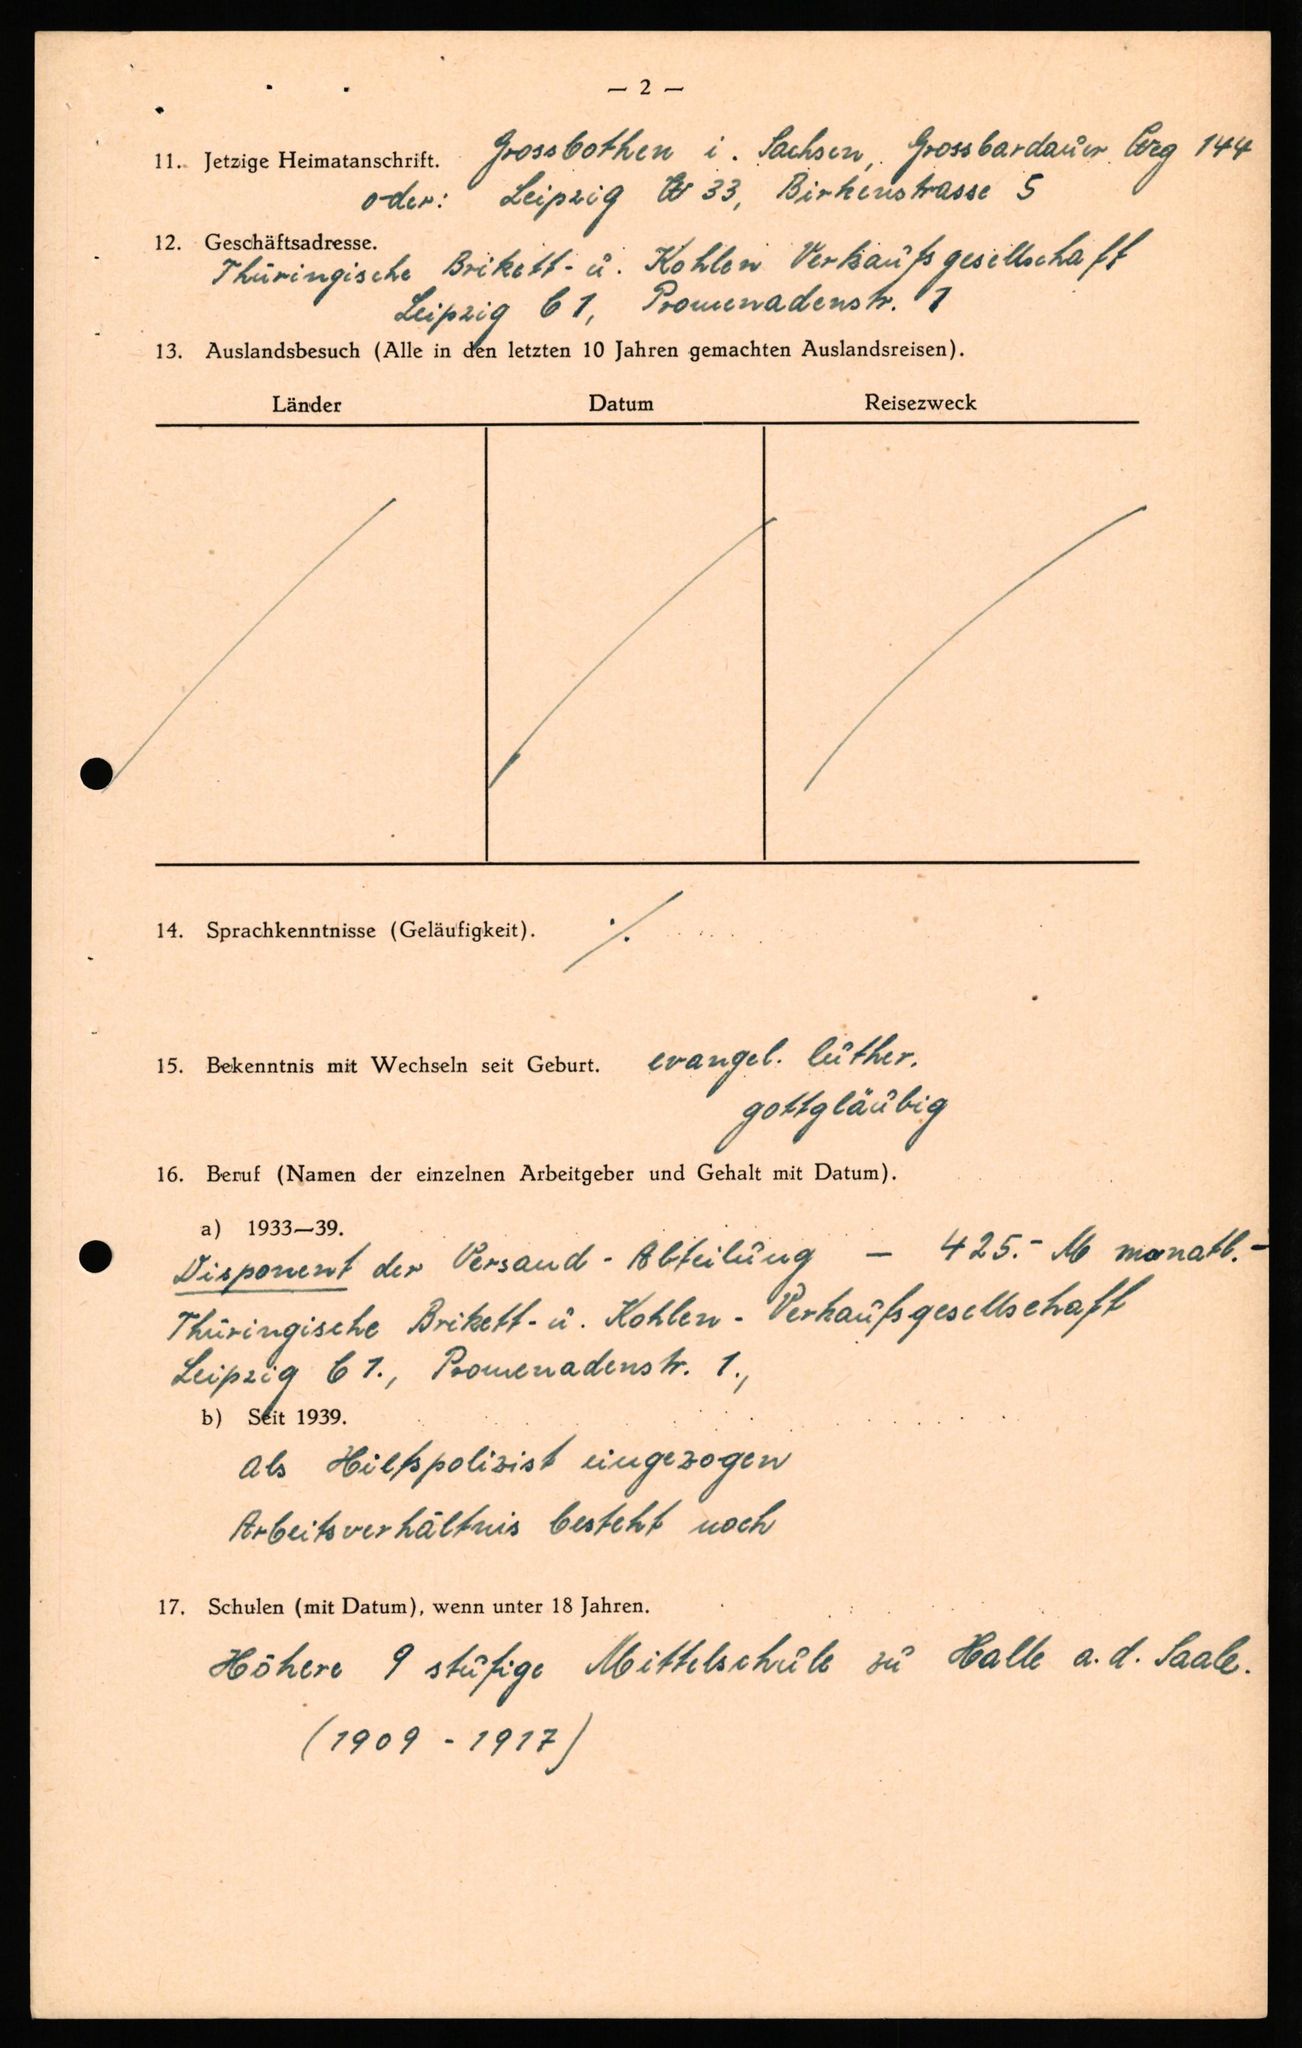 — 2 —
11. Jetzige Heimatanschrift. Grossbothen i. Sachsen, Grossbardauer Weg 144
oder: Leipzig W 33, Birkenstrasse 5
12. Geschäftsadresse.
Thüringische Brikett- u. Kohlen Verkaufsgesellschaft
Leipzig C 1, Promenadenstr. 1
13. Auslandsbesuch (Alle in den letzten 10 Jahren gemachten Auslandsreisen).
Länder Datum Reisezweck
14. Sprachkenntnisse (Geläufigkeit). ⁒
15. Bekenntnis mit Wechseln seit Geburt. evangel. luther.
gottgläubig
16. Beruf (Namen der einzelnen Arbeitgeber und Gehalt mit Datum).
a) 1933—39.
Disponent der Versand-Abteilung — 425.- M monatl.-
Thüringische Brikett- u. Kohlen-Verkaufsgesellschaft
Leipzig C 1., Promenadenstr. 1.,
b) Seit 1939.
als Hilfspolizist eingezogen
Arbeitsverhältnis besteht noch
17. Schulen (mit Datum), wenn unter 18 Jahren.
Höhere 9 stufige Mittelschule zu Halle a. d. Saale.
(1909 - 1917)